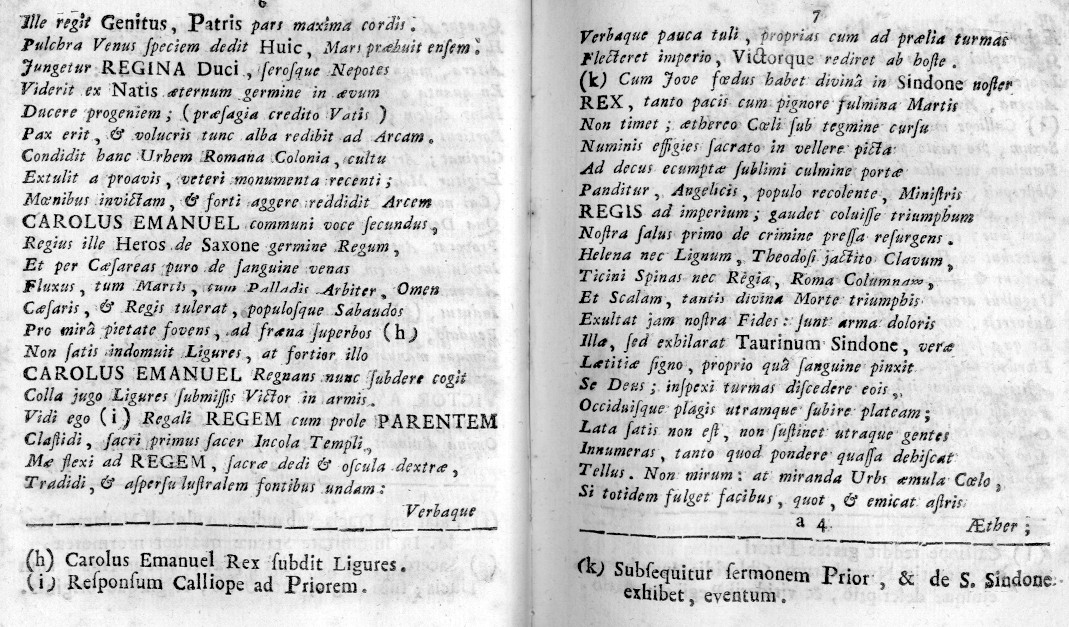 6
Ille regit Genitus, Patris pars maxima cordis.
Pulchra Venus ſpeciem dedit Huic, Mars præbuit enſem.
Jungetur REGINA Duci, ſeroſque Nepotes
Viderit ex Natis æternum germine in ævum
Ducere progeniem; (præſagia credito Vatis)
Pax erit, & volucris tunc alba redibit ad Arcam.
Condidit hanc Urbem Romana Colonia, cultu
Extulit a proavis, veteri monumenta recenti;
Mœnibus invictam, & forti aggere reddidit Arcem
CAROLUS EMANUEL communi voce ſecundus,
Regius ille Heros de Saxone germine Regum,
Et per Cæſareas puro de ſanguine venas
Fluxus, tum Martis, tum Palladis Arbiter, Omen
Cæſaris, & Regis tulerat, populoſque Sabaudos
Pro mirâ pietate fovens, ad fræna ſuperbos (h)
Non ſatis indomuit Ligures, at fortior illo
CAROLUS EMANUEL Regnans nunc ſubdere cogit
Colla jugo Ligures ſubmiſſis Victor in armis.
Vidi ego (i) Regali REGEM cum prole PARENTEM
Claſtidi, ſacri primus ſacer Incola Templi,
Me flexi ad REGEM, ſacræ dedi & oſcula dextræ,
Tradidi, & aſperſu luſtralem fontibus undam:
Verbaque
(h) Carolus Emanuel Rex ſubdit Ligures.
(i) Reſponſum Calliope ad Priorem.
7
Verbaque pauca tuli, proprias cum ad prælia turmas
Flecteret imperio, Victorque rediret ab hoſte.
(k) Cum Jove fœdus habet divinâ in Sindone noſter
REX, tanto pacis cum pignore fulmina Martis
Non timet; æthereo Cœli ſub tegmine curſu
Numinis effigies ſacrato in vellere picta
Ad decus ecumptæ ſublimi culmine portæ
Panditur, Angelicis, populo recolente, Miniſtris
REGIS ad imperium; gaudet coluiſſe triumphum
Noſtra ſalus primo de crimine preſſa reſurgens.
Helena nec Lignum, Theodoſi jactito Clavum,
Ticini Spinas nec Regia, Roma Columnam,
Et Scalam, tantis divina Morte triumphis
Exultat jam noſtra Fides: ſunt arma doloris
Illa, ſed exhilarat Taurinum Sindone, veræ
Lætitiæ ſigno, proprio quâ ſanguine pinxit
Se Deus; inſpexi turmas diſcedere eois,
Occiduiſque plagis utramque ſubire plateam;
Lata ſatis non eſt, non ſuſtinet utraque gentes
Innumeras, tanto quod pondere quaſſa dehiſcat
Tellus. Non mirum: at miranda Urbs æmula Cœlo,
Si totidem fulget facibus, quot, & emicat aſtris
a 4 Æther;
(k) Subſequitur ſermonem Prior, & de S. Sindone
exhibet, eventum.